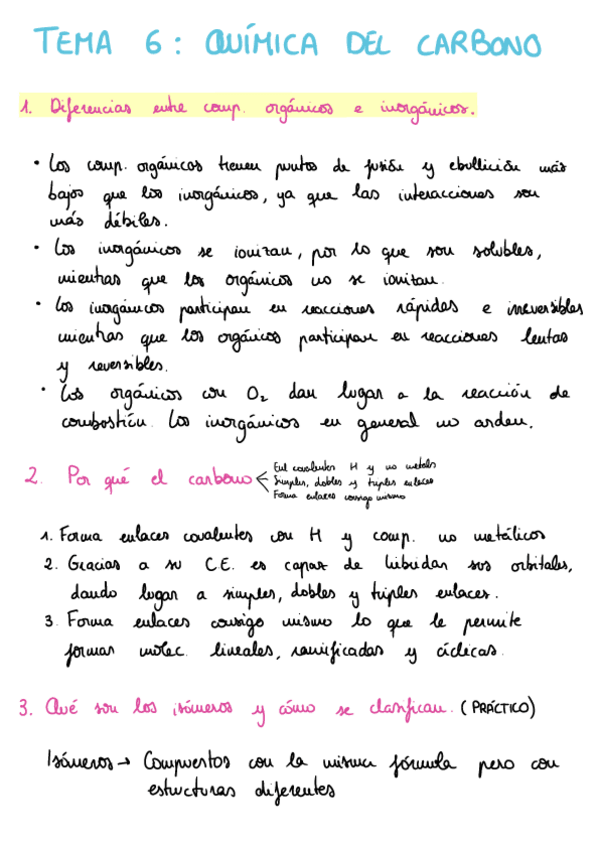 TEMA 6: QUÍMICA DEL CARBONO
1. Diferencias entre comp. orgánicos e inorgánicos.
• Los comp. orgánicos tienen puntos de fusión y ebullición más
bajos que los inorgánicos, ya que las interacciones son
más débiles.
• Los inorgánicos se ionizan, por lo que son solubles,
mientras que los orgánicos no se ionizan.
• Los inorgánicos participan en reacciones rápidas e irreversibles
mientras que los orgánicos participan en reacciones lentas
y reversibles.
• Los orgánicos con O₂ dan lugar a la reacción de
combustión. Los inorgánicos en general no arden.
2. Por qué el carbono
Enl covalentes H y no metales
Simples, dobles y triples enlaces
Forma enlaces consigo mismo
1. Forma enlaces covalentes con H y comp. no metálicos
2. Gracias a su C.E. es capaz de hibridar sus orbitales,
dando lugar a simples, dobles y triples enlaces.
3. Forma enlaces consigo mismo lo que le permite
formar molec. lineales, ramificadas y cíclicas.
3. Qué son los isómeros y cómo se clasifican. (PRÁCTICO)
Isómeros → Compuestos con la misma fórmula pero con
estructuras diferentes